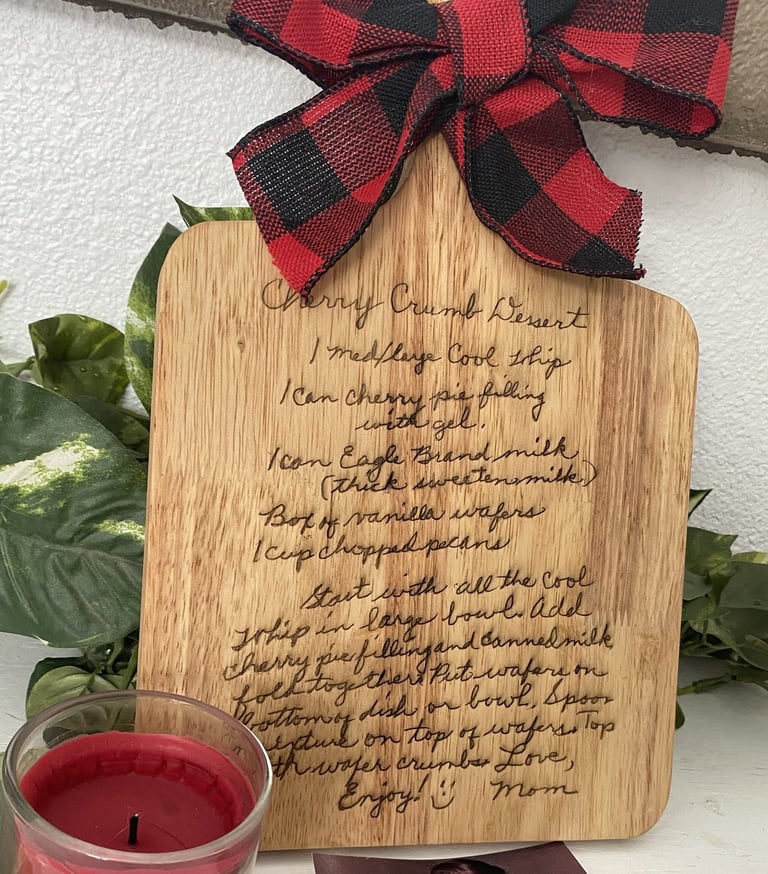 Cherry Crumb Dessert
1 med/large Cool Whip
1 can cherry pie filling
with gel.
1 can Eagle Brand milk
(thick sweeten milk)
Box of vanilla wafers
1 cup chopped pecans
Start with all the Cool
Whip in large bowl. Add
cherry pie filling and canned milk
fold together. Put wafers on
bottom of dish or bowl. Spoon
on top of wafers. Top
wafer crumbs. Love,
Enjoy! Mom